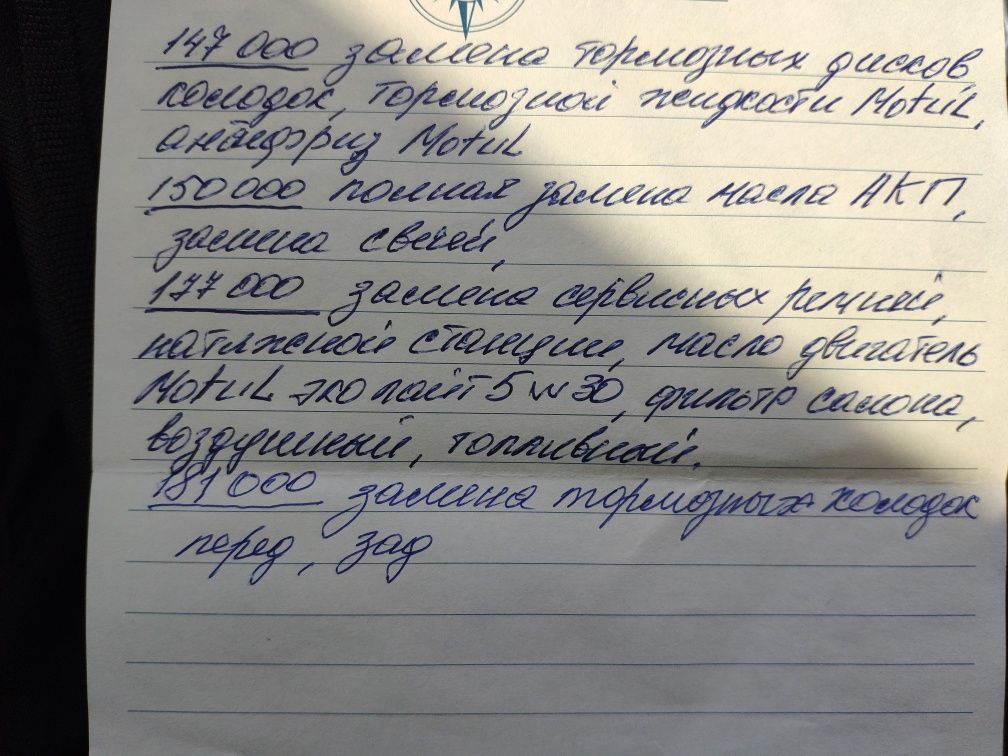 147 000 замена тормозных дисков,
колодок, тормозной жидкости Motul,
антифриз Motul
150 000 полная замена масла АКП,
замена свечей,
177 000 замена сервисных ремней,
натяжной станции, масло двигатель
Motul эко лайт 5w30, фильтр салона,
воздушный, топливный.
181 000 замена тормозных колодок
перед, зад